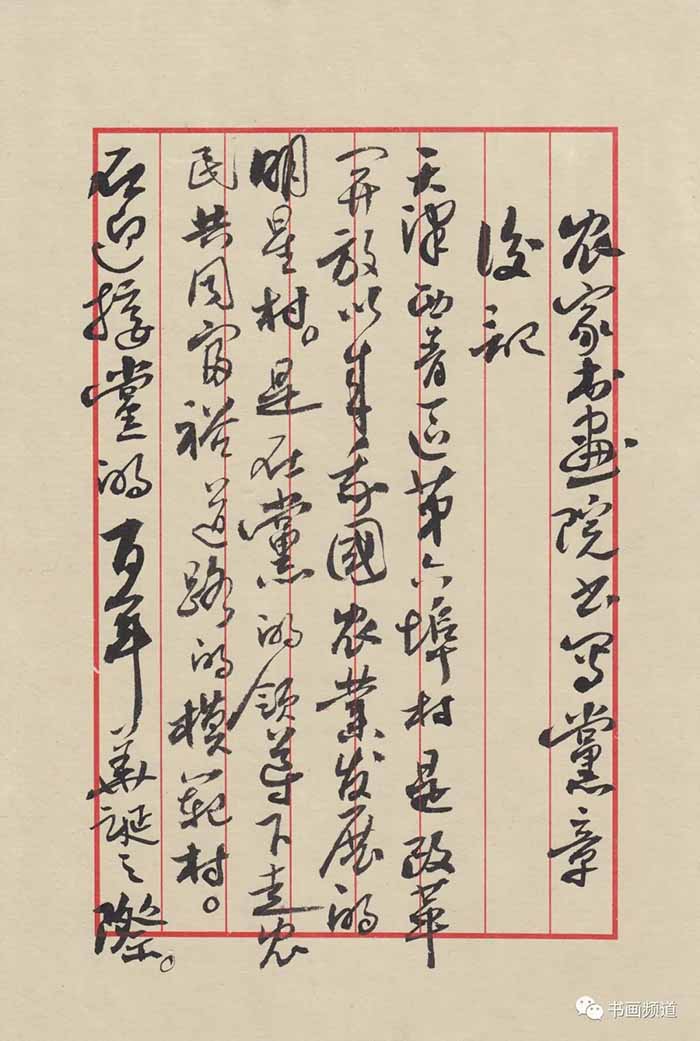 农家书画院书写黨章
後記
天津西青区第六埠村是改革
开放以来我國农業发展的
明星村。是在黨的领导下走农
民共同富裕道路的模範村。
在迎接党的百年華誕之際。
书画频道